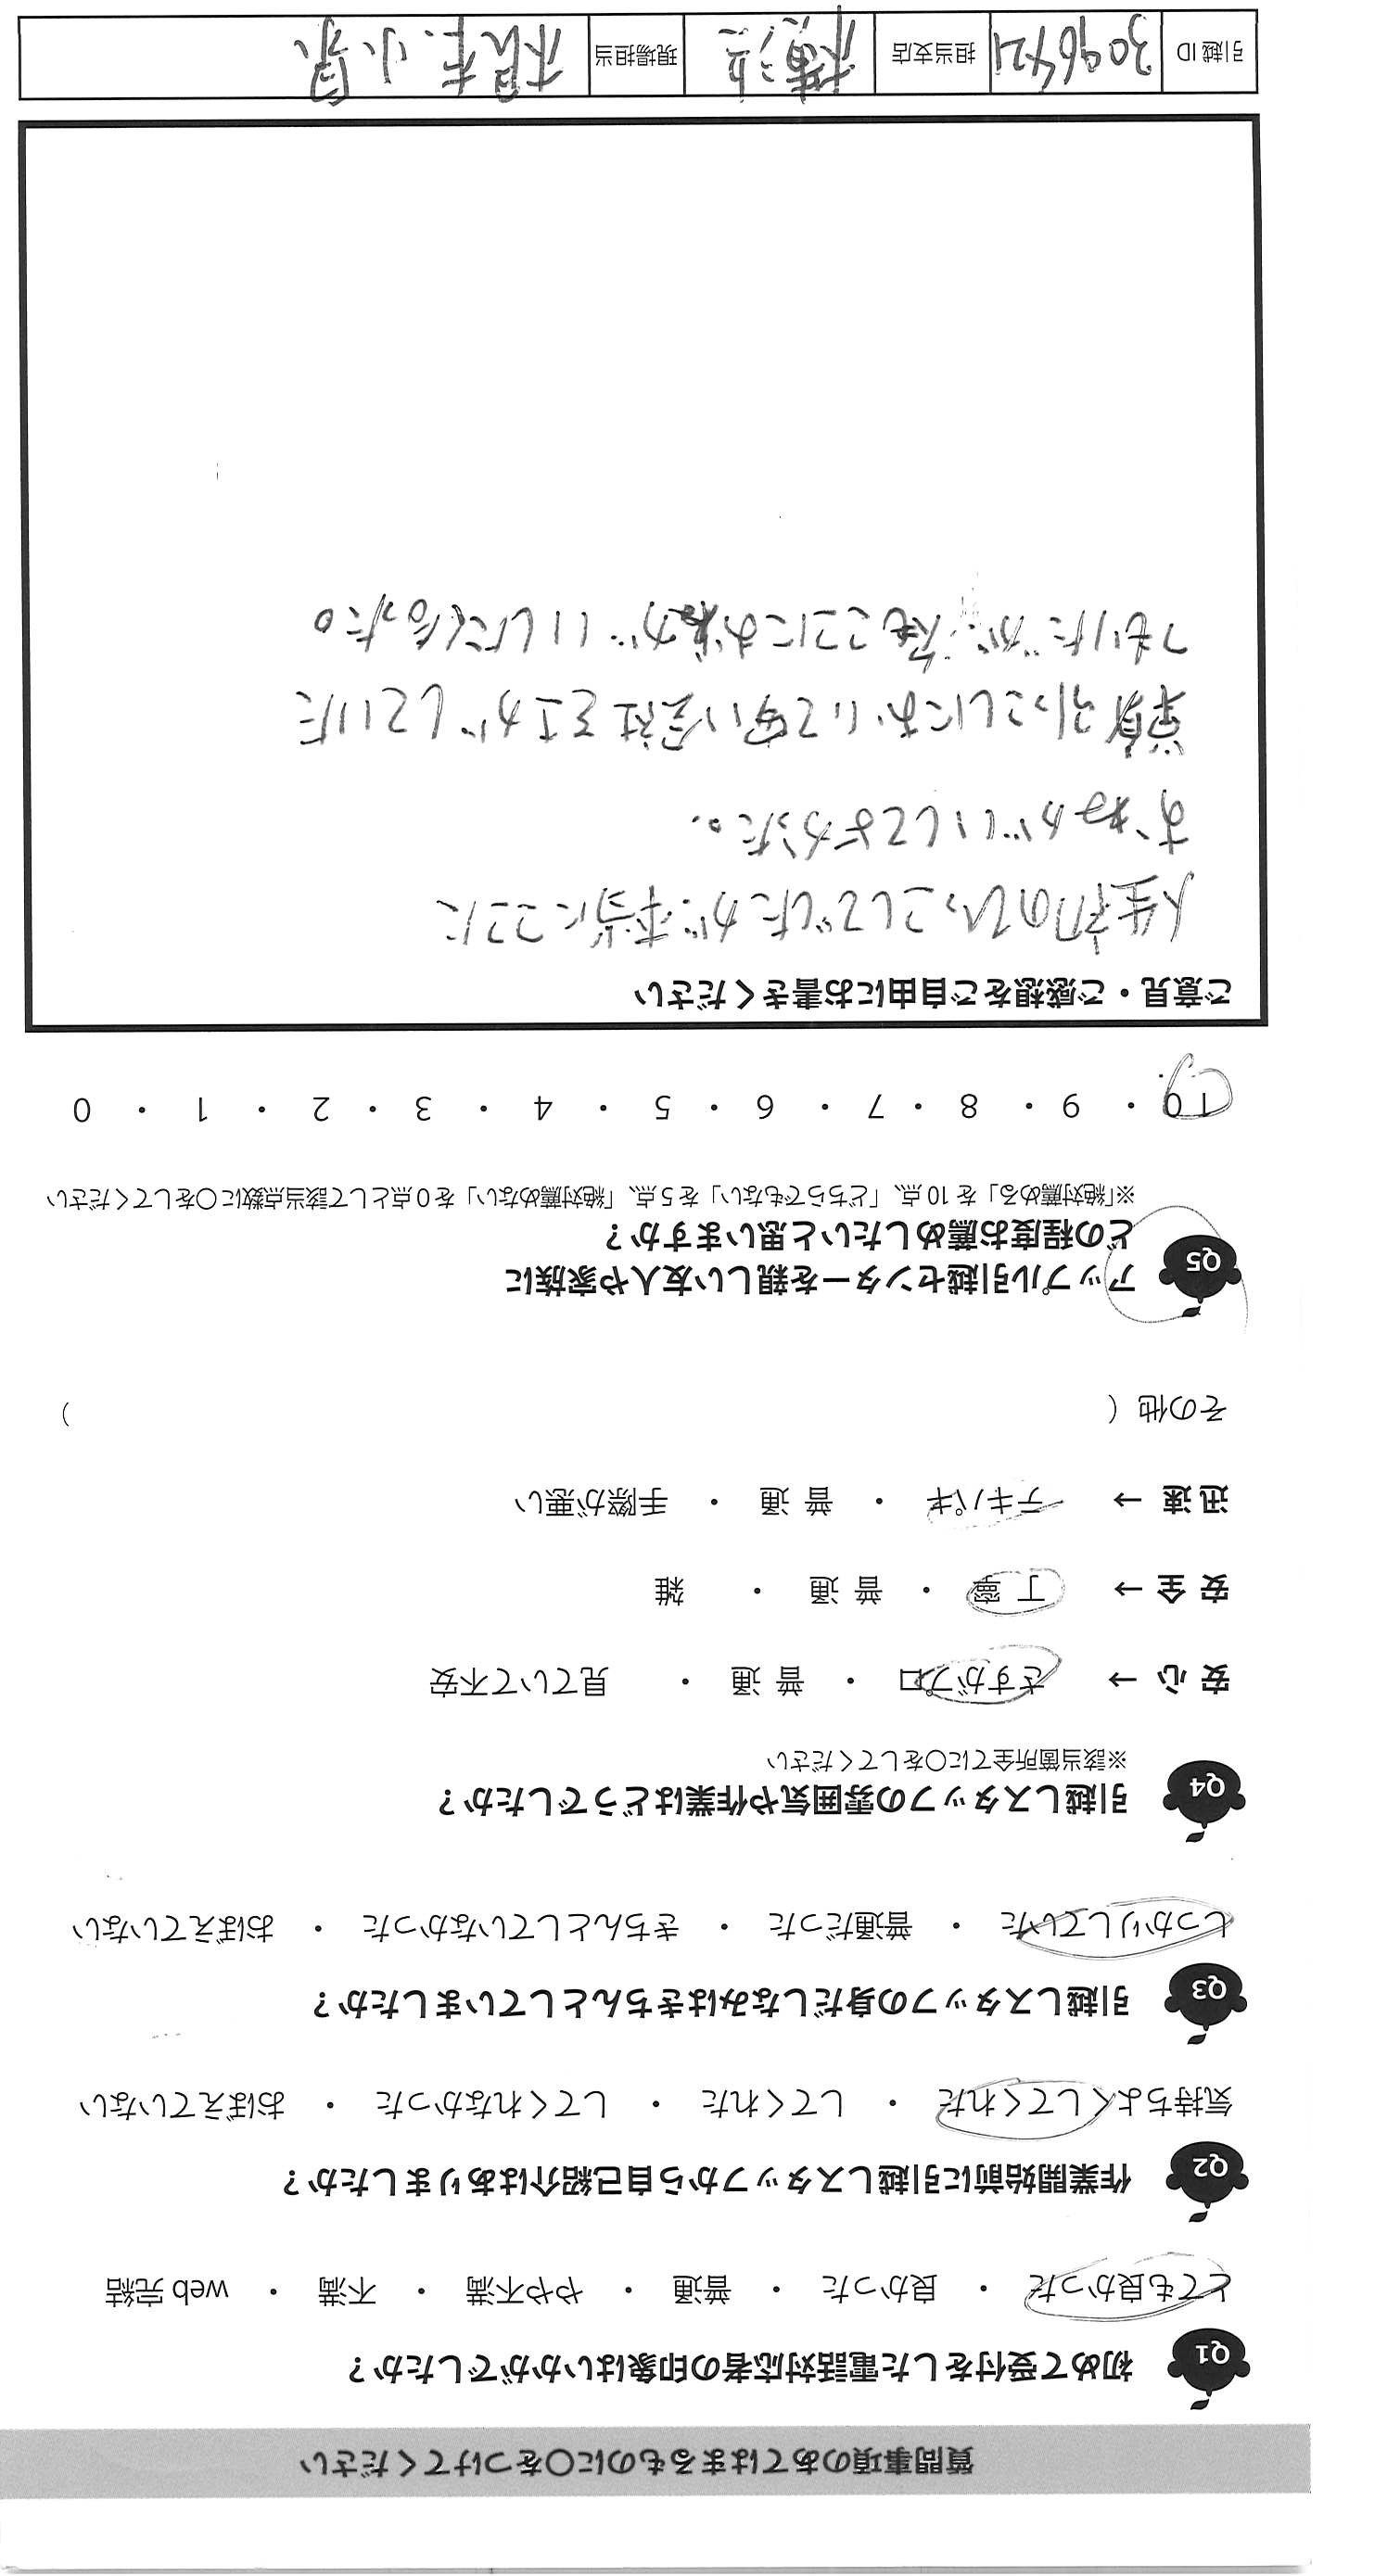 質問事項のあてはまるものに〇をつけてください
Q1 初めて受付をした電話対応者の印象はいかがでしたか?
とても良かった ・ 良かった ・ 普通 ・ やや不満 ・ 不満 ・ web 完結
Q2 作業開始前に引越しスタッフから自己紹介はありましたか?
気持ちよくしてくれた ・ してくれた ・ してくれなかった ・ おぼえていない
Q3 引越しスタッフの身だしなみはきちんとしていましたか?
しっかりしていた ・ 普通だった ・ きちんとしていなかった ・ おぼえていない
Q4 引越しスタッフの雰囲気や作業はどうでしたか?
※該当箇所全てに〇をしてください
安 心 → さすがプロ ・ 普 通 ・ 見ていて不安
安 全 → 丁 寧 ・ 普 通 ・ 雑
迅 速 → テキパキ ・ 普 通 ・ 手際が悪い
その他 ( )
Q5 アップル引越センターを親しい友人や家族に
どの程度お薦めしたいと思いますか?
※「絶対薦める」を 10 点、「どちらでもない」を 5 点、「絶対薦めない」を 0 点として該当点数に〇をしてください
10 ・ 9 ・ 8 ・ 7 ・ 6 ・ 5 ・ 4 ・ 3 ・ 2 ・ 1 ・ 0
ご意見・ご感想をご自由にお書きください
人生初のひっこしでしたが本当にここに
おねがいしてよかった。
単身引っこしにおいて安い会社をエがしていた
つもりだが、次もここにおねがいしたくなった。
引越 ID 3096421 担当支店 横浜 現場担当 根本、小泉